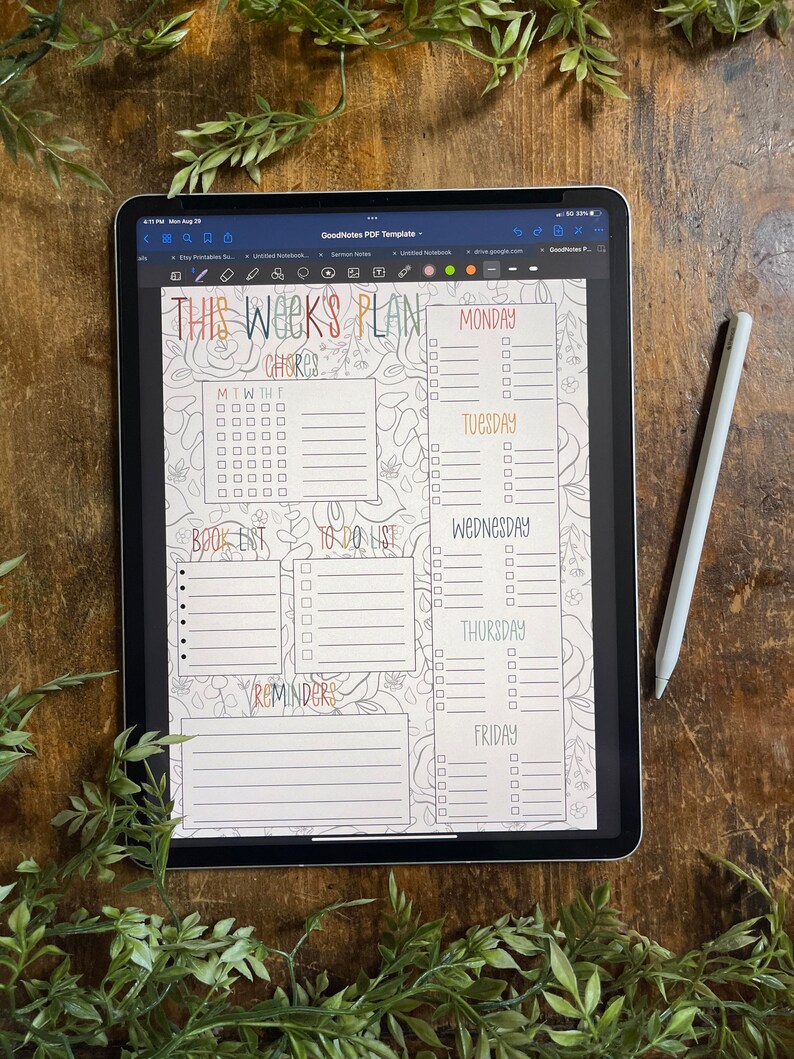 4:11 PM Mon Aug 29
5G 33%
GoodNotes PDF Template
ails
Etsy Printables Su...
Untitled Notebook...
Sermon Notes
Untitled Notebook
drive.google.com
GoodNotes P...
THIS WEEK'S PLAN
CHORES
M T W TH F
BOOK LIST
TO DO LIST
REMINDERS
MONDAY
TUESDAY
WEDNESDAY
THURSDAY
FRIDAY